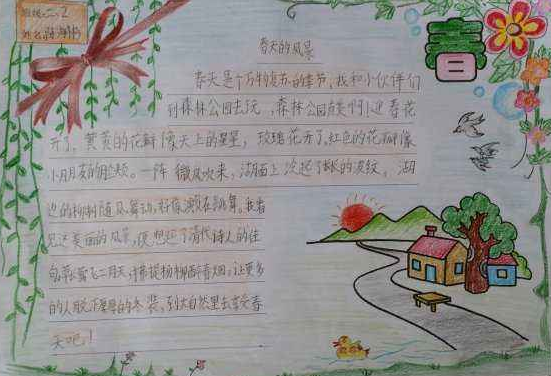 班级:二、2
姓名
春
春天的风景
春天是个万物复苏的季节,我和小伙伴们
到森林公园去玩,森林公园真美啊!迎春花
开了,黄黄的花瓣像天上的星星,玫瑰花开了,红色的花瓣像
小朋友的脸颊。一阵微风吹来,湖面上泛起了长长的波纹,湖
边的柳树随风舞动,好像演员在跳舞。我看
见这美丽的风景,便想起了清代诗人的佳
句:草长莺飞二月天,拂堤杨柳醉春烟,让更多
的人脱下厚厚的冬装,到大自然里去享受春
天吧!